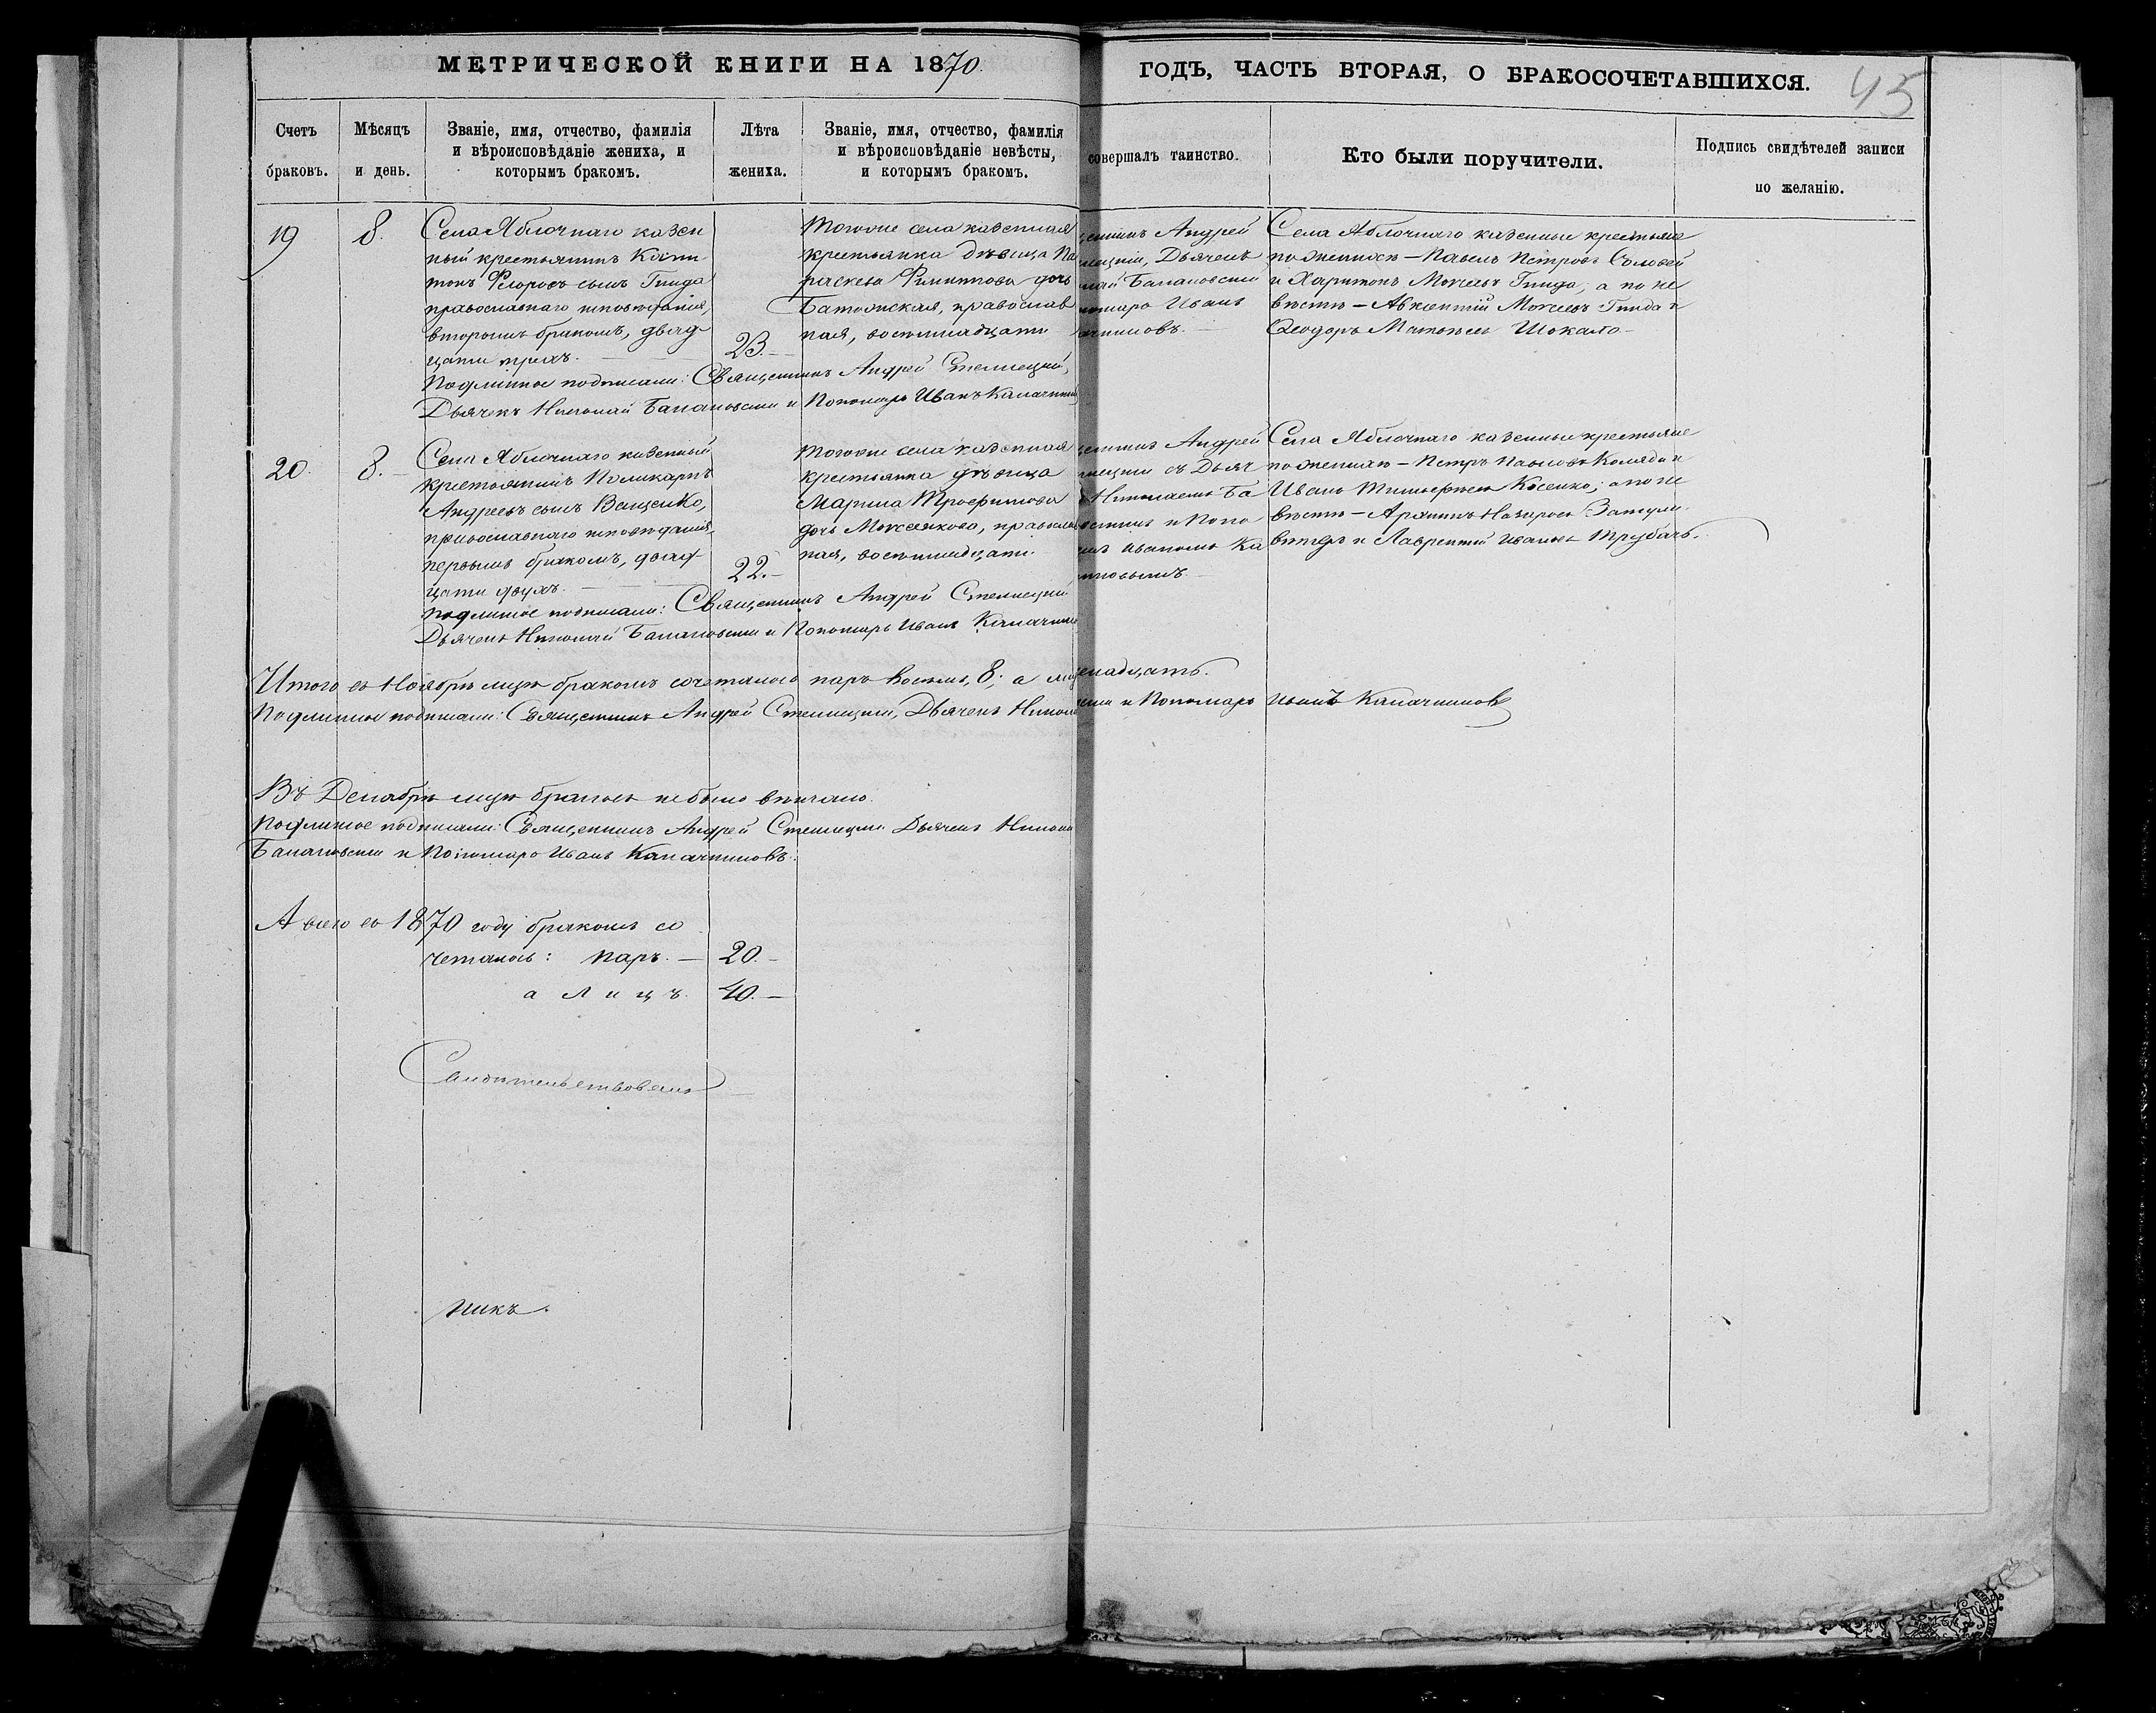 МЕТРИЧЕСКОЙ КНИГИ НА 1870.
ГОДЪ, ЧАСТЬ ВТОРАЯ, О БРАКОСОЧЕТАВШИХСЯ.
45
Счетъ браковъ.
Мѣсяцъ и день.
Званіе, имя, отчество, фамилія
и вѣроисповѣданіе жениха, и
которымъ бракомъ.
Лѣта жениха.
Званіе, имя, отчество, фамилія
и вѣроисповѣданіе невѣсты,
и которымъ бракомъ.
совершалъ таинство.
Кто были поручители.
Подпись свидѣтелей записи
по желанію.
19
8.
Села Яблочнаго казен
ный крестьянинъ
сынъ Гнида
православнаго исповѣданія,
вторымъ бракомъ, двад
цати трехъ.
23.
Тогоже села казенная
крестьянка дѣвица Па
раскева Филиппова дочь
православ
ная, восемнадцати
Андрей
Дьячекъ
Иванъ
Села Яблочнаго казенные крестьяне
по женихѣ — Павелъ Петровъ Соловей
и Харитонъ Моисеевъ Гнида, а по не
вѣстѣ — Авксентій Моисеевъ Гнида и
Ѳеодоръ Матвѣевъ Шокало
Подлинное подписали: Священникъ Андрей Стеллецкій,
Дьячекъ Николай и Пономарь Иванъ
20.
8.
Села Яблочнаго казенный
крестьянинъ Поликарпъ
Андреевъ сынъ Ващенко,
православнаго исповѣданія,
первымъ бракомъ, двад
цати двухъ.
22.
Тогоже села казенная
крестьянка дѣвица
Марина Трофимова
дочь православ
ная, восемнадцати.
Андрей
съ Дьяч
Николаемъ Ба
и Поно
Иваномъ Ка
Села Яблочнаго казенные крестьяне
по женихѣ — Петръ Павловъ Коляда и
Иванъ Тимофеевъ Косенко; а по не
вѣстѣ — Назаровъ
и Лаврентій Ивановъ Трубачъ.
Подлинное подписали: Священникъ Андрей Стеллецкій
Дьячекъ Николай и Пономарь Иванъ
Итого въ Ноябрѣ мцѣ бракомъ сочеталось паръ восемь, 8; а
Подлинное подписали: Священникъ Андрей Стеллецкій, Дьячекъ и Пономарь Иванъ
Въ Декабрѣ мцѣ браковъ не было вѣнчано.
Подлинное подписали: Священникъ Андрей Стеллецкій Дьячекъ
и Пономарь Иванъ
А всего въ 1870 году бракомъ со
четалось: паръ. — 20. —
а лицъ. 40. —
Свидѣтельствовалъ
никъ.